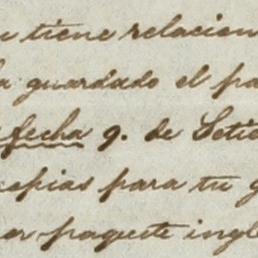 tiene relacion
guardado el pa
fecha 9. de Setie
copias para tu g
paquete ingl